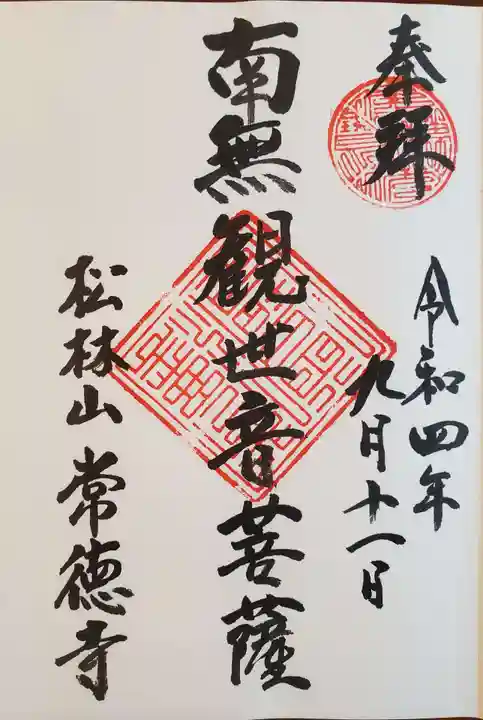 奉拜
令和四年
九月十一日
南無観世音菩薩
松林山 常徳寺